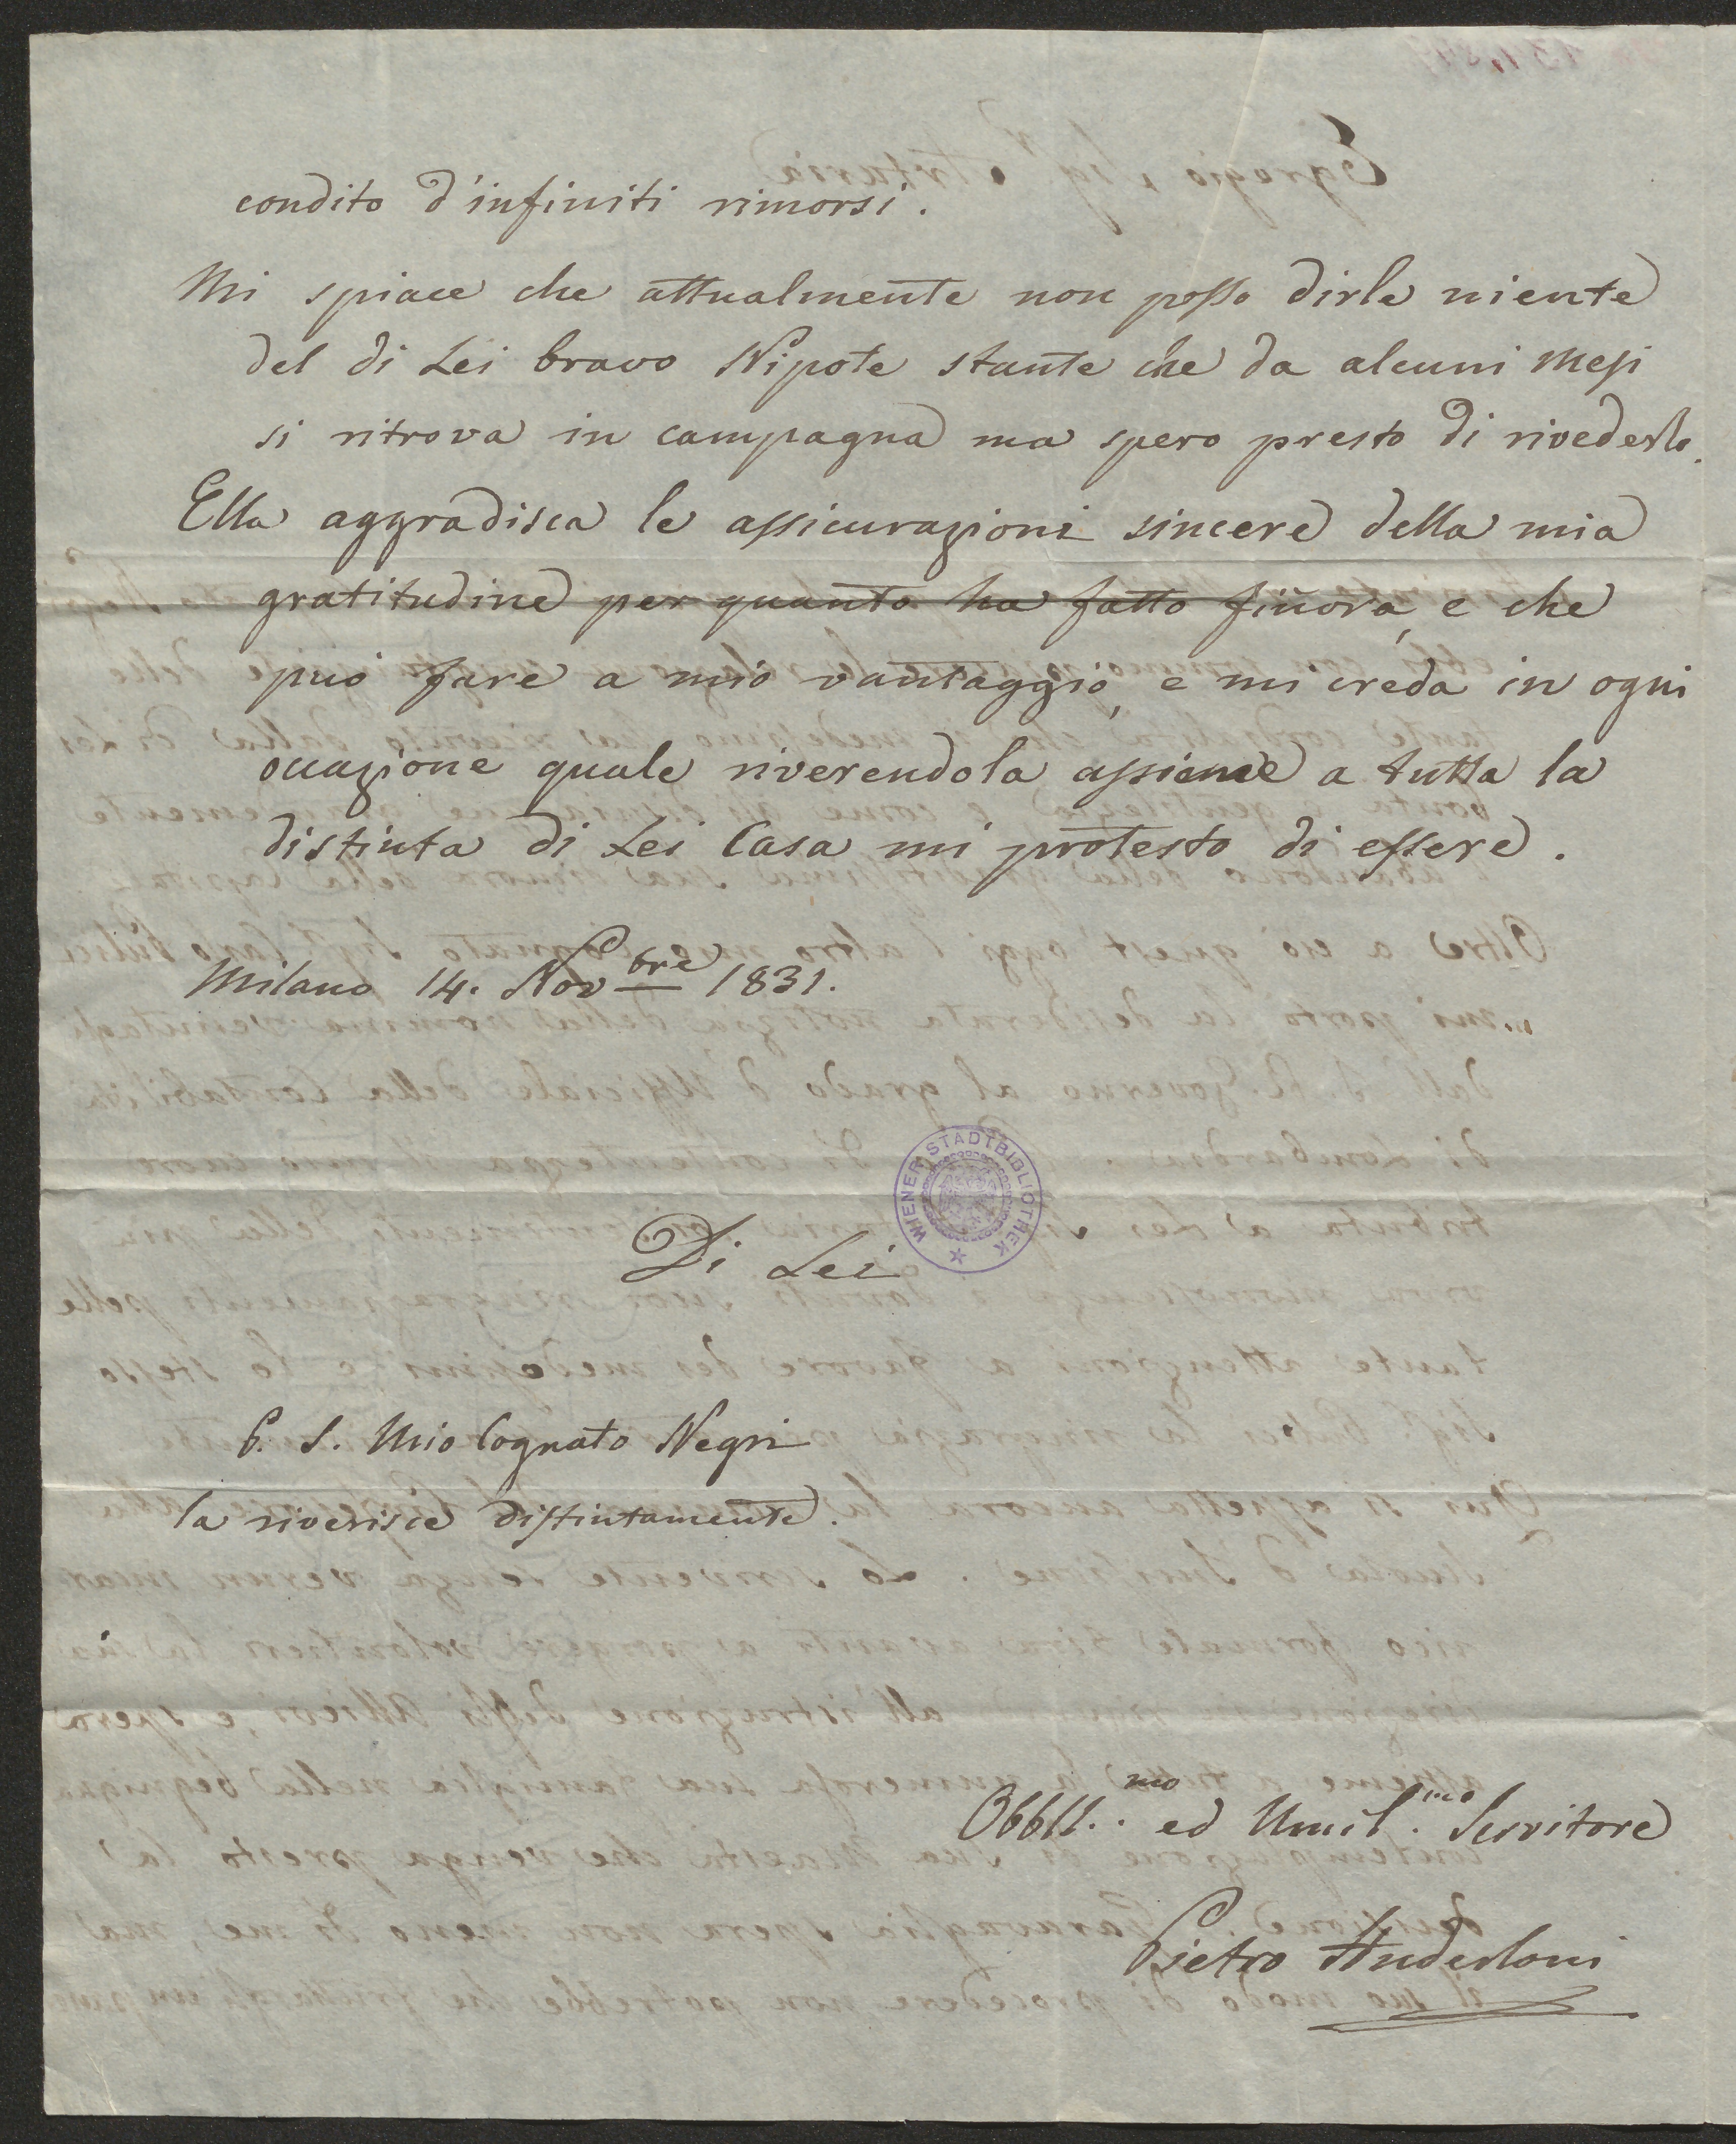 condito d'infiniti rimorsi.
Mi spiace che attualmente non posso dirle niente
del di Lei bravo Nipote stante che da alcuni Mesi
si ritrova in campagna ma spero presto di rivederlo.
Ella aggradisca le assicurazioni sincere della mia
gratitudine per quanto ha fatto finora, e che
può fare a mio vantaggio, e mi creda in ogni
occazione quale riverendola assieme a tutta la
distinta di Lei Casa mi protesto di essere.
Milano 14. Novbre 1831.
WIENER STADTBIBLIOTHEK
Di Lei
P. S. Mio Cognato Negri
la riverisce distintamente.
Obbli.mo ed Umil.mo Servitore
Pietro Anderloni